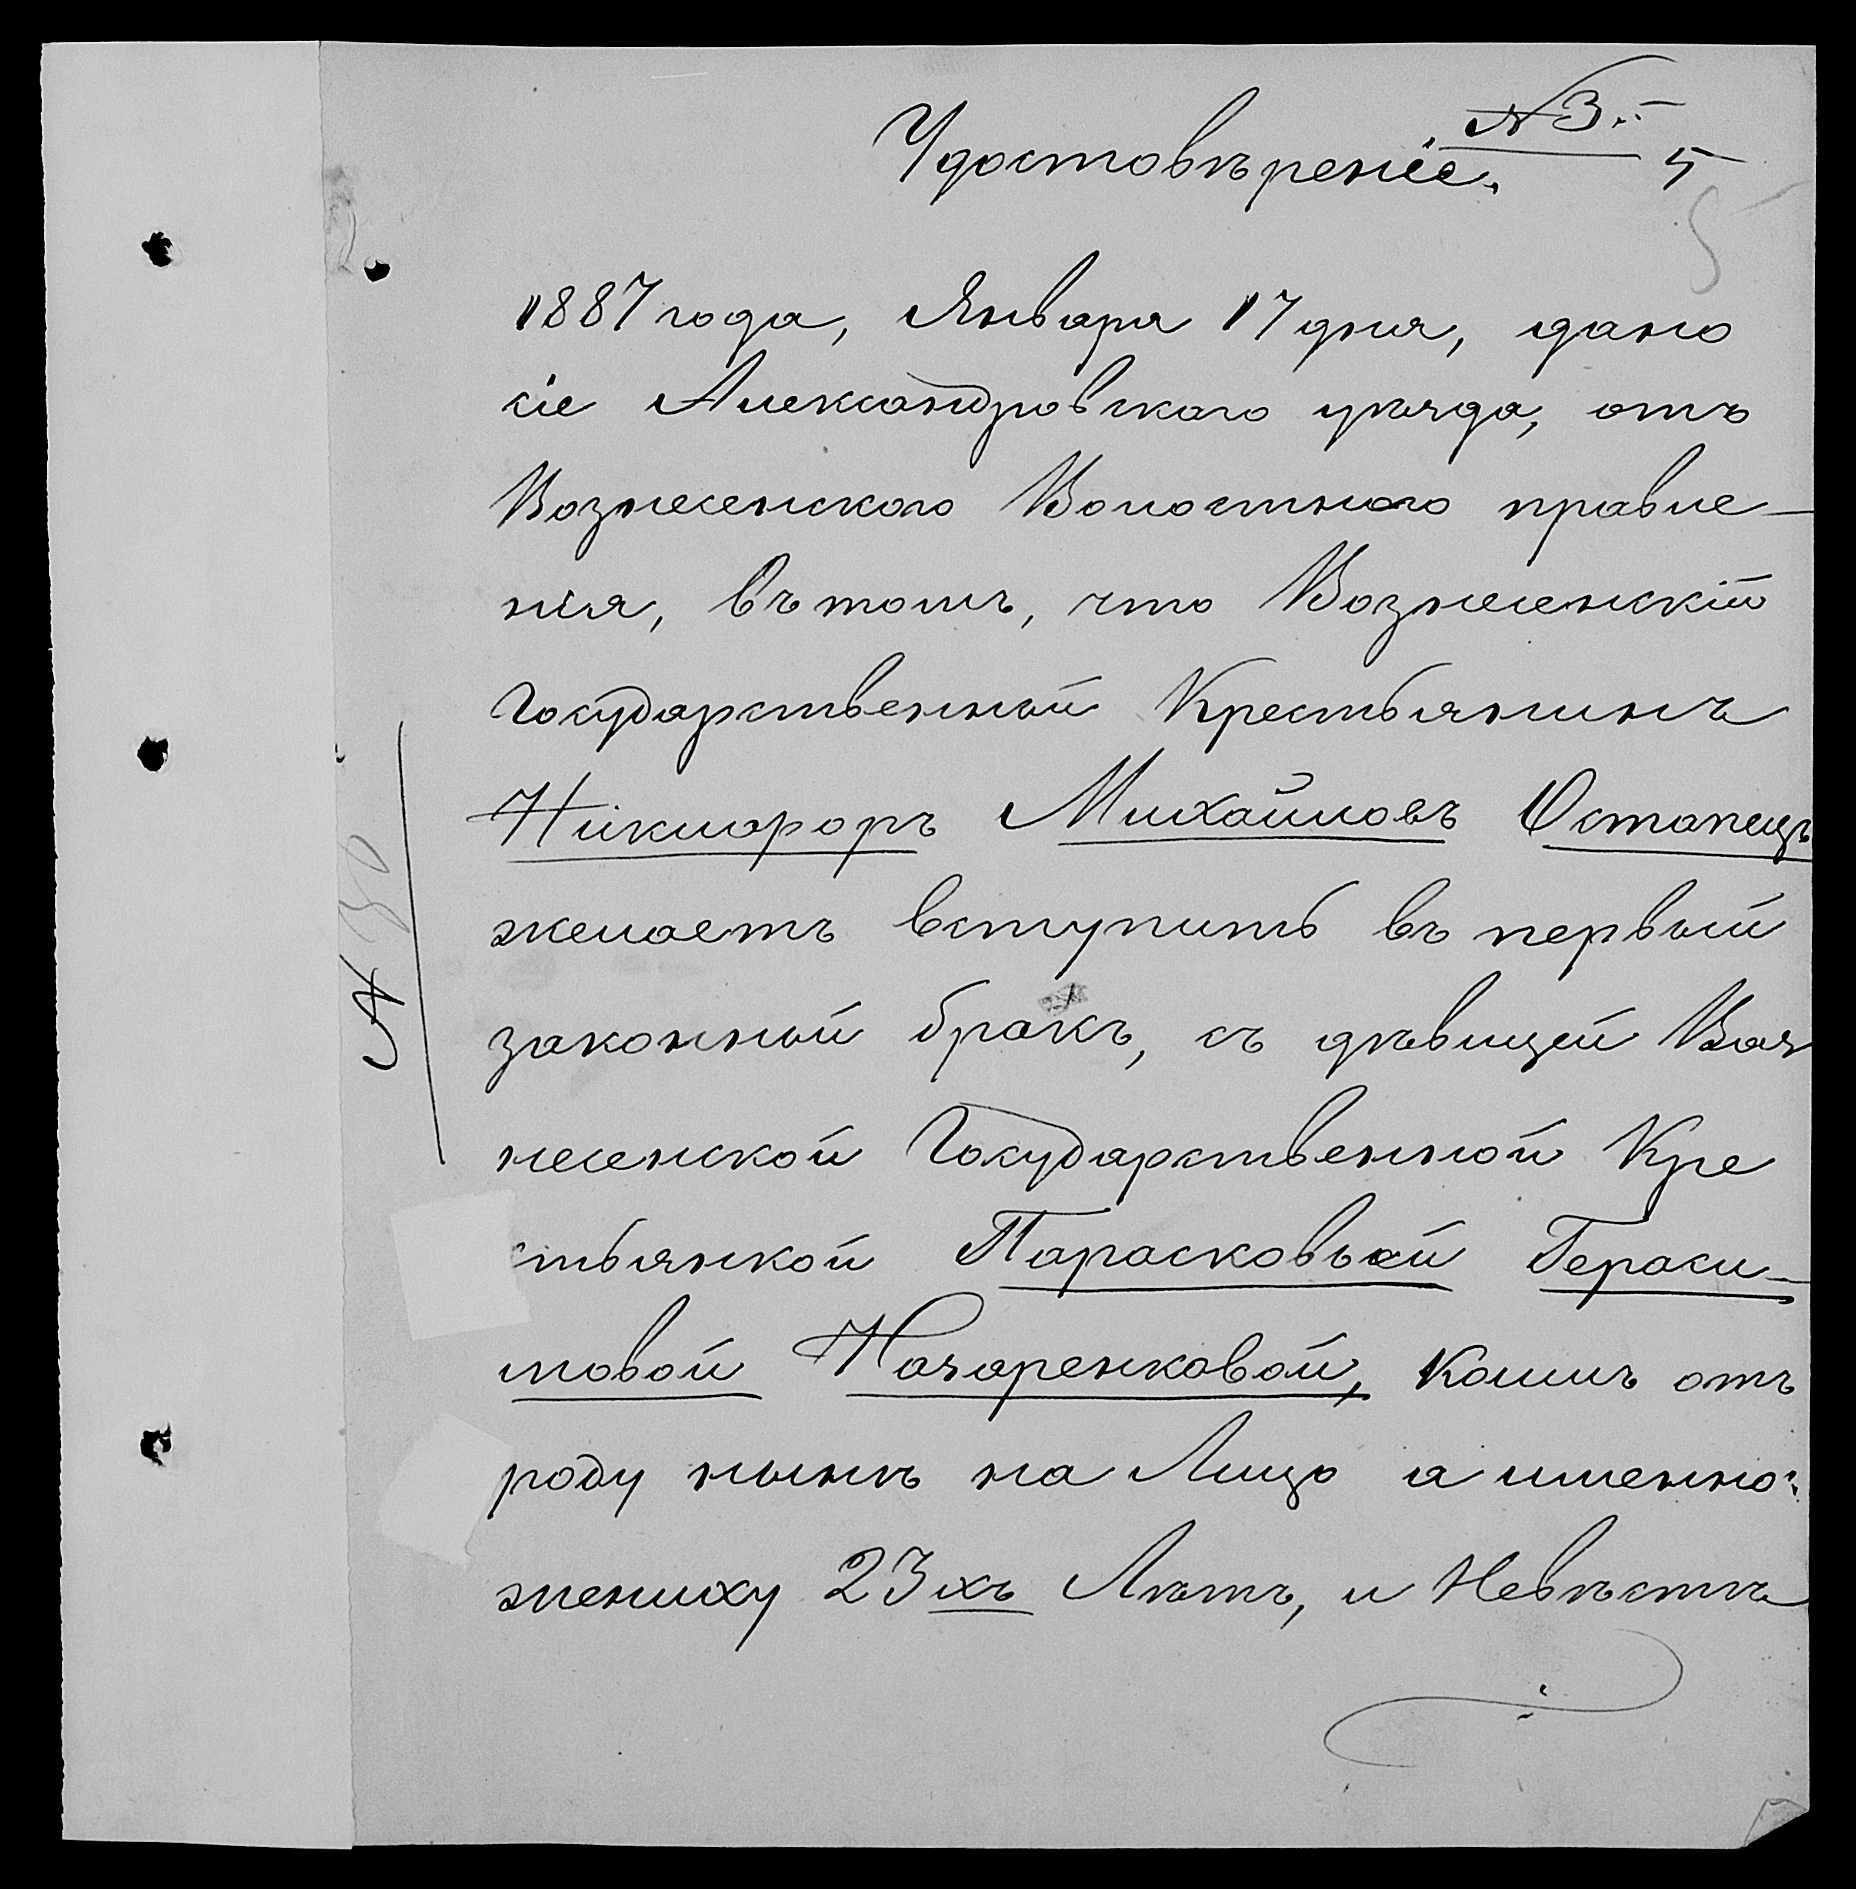 № 3.
Удостовѣреніе.
5
5
1887 года, Января 17 дня, дано
сіе Александровскаго уѣзда, отъ
Вознесенскаго Волостнаго правле-
нія, въ томъ, что Вознесенскій
Государственный Крестьянинъ
Никифоръ Михайловъ Остапецъ
желаетъ вступить въ первый
законный бракъ, съ дѣвицей Воз
несенской Государственной Кре
стьянкой Парасковьей Гераси-
мовой Назаренковой, коимъ отъ
роду нынѣ на Лицо а именно:
жениху 23ихъ Лѣтъ, и Невѣстѣ
№ 30